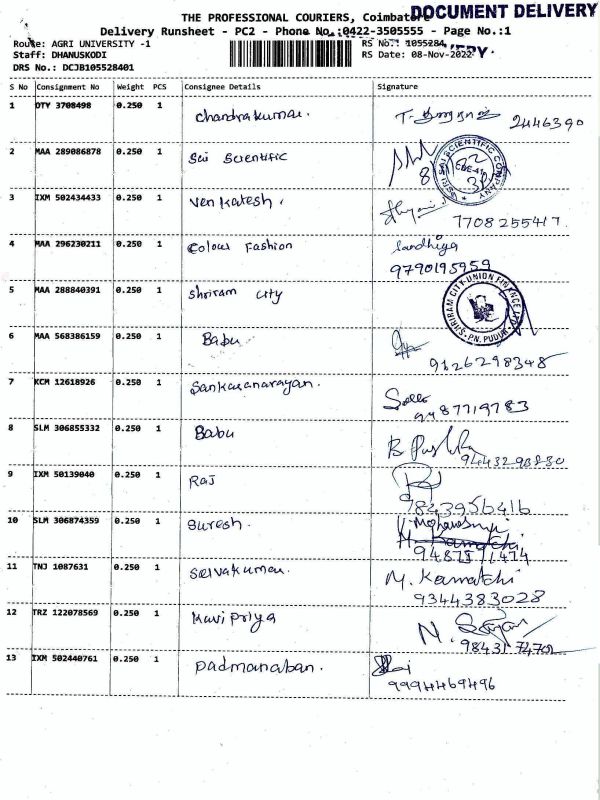 DOCUMENT DELIVERY
THE PROFESSIONAL COURIERS, Coimbatore
Delivery Runsheet - PC2 - Phone No.:0422-3505555 - Page No.:1
Route: AGRI UNIVERSITY -1 RS No.: 1055284
Staff: DHANUSKODI RS Date: 08-Nov-2022
DRS No.: DCJB105528401
S No Consignment No Weight PCS Consignee Details Signature
1 DTY 3708498 0.250 1 Chandrakumar. 2446390
2 MAA 289086878 0.250 1 Sai Scientific SRI SAI SCIENTIFIC COMPANY
3 IXM 502434433 0.250 1 Venkatesh. 7708255417
4 MAA 296230211 0.250 1 Colour Fashion Sandhiya
9790195959
5 MAA 288840391 0.250 1 Shriram City SHRIRAM CITY UNION FINANCE LTD P.N. PUDUR
6 MAA 568386159 0.250 1 Babu
9126298348
7 KCM 12618926 0.250 1 Sankaranarayan.
9487719783
8 SLM 306855332 0.250 1 Babu
9443298830
9 IXM 50139040 0.250 1 Raj
9843956416
10 SLM 306874359 0.250 1 Suresh.
11 TNJ 1087631 0.250 1 Selvakumar. M. Kamatchi
9344383028
12 TRZ 122078569 0.250 1 Kavipriya
13 IXM 502440761 0.250 1 Padmanaban.
9994469496